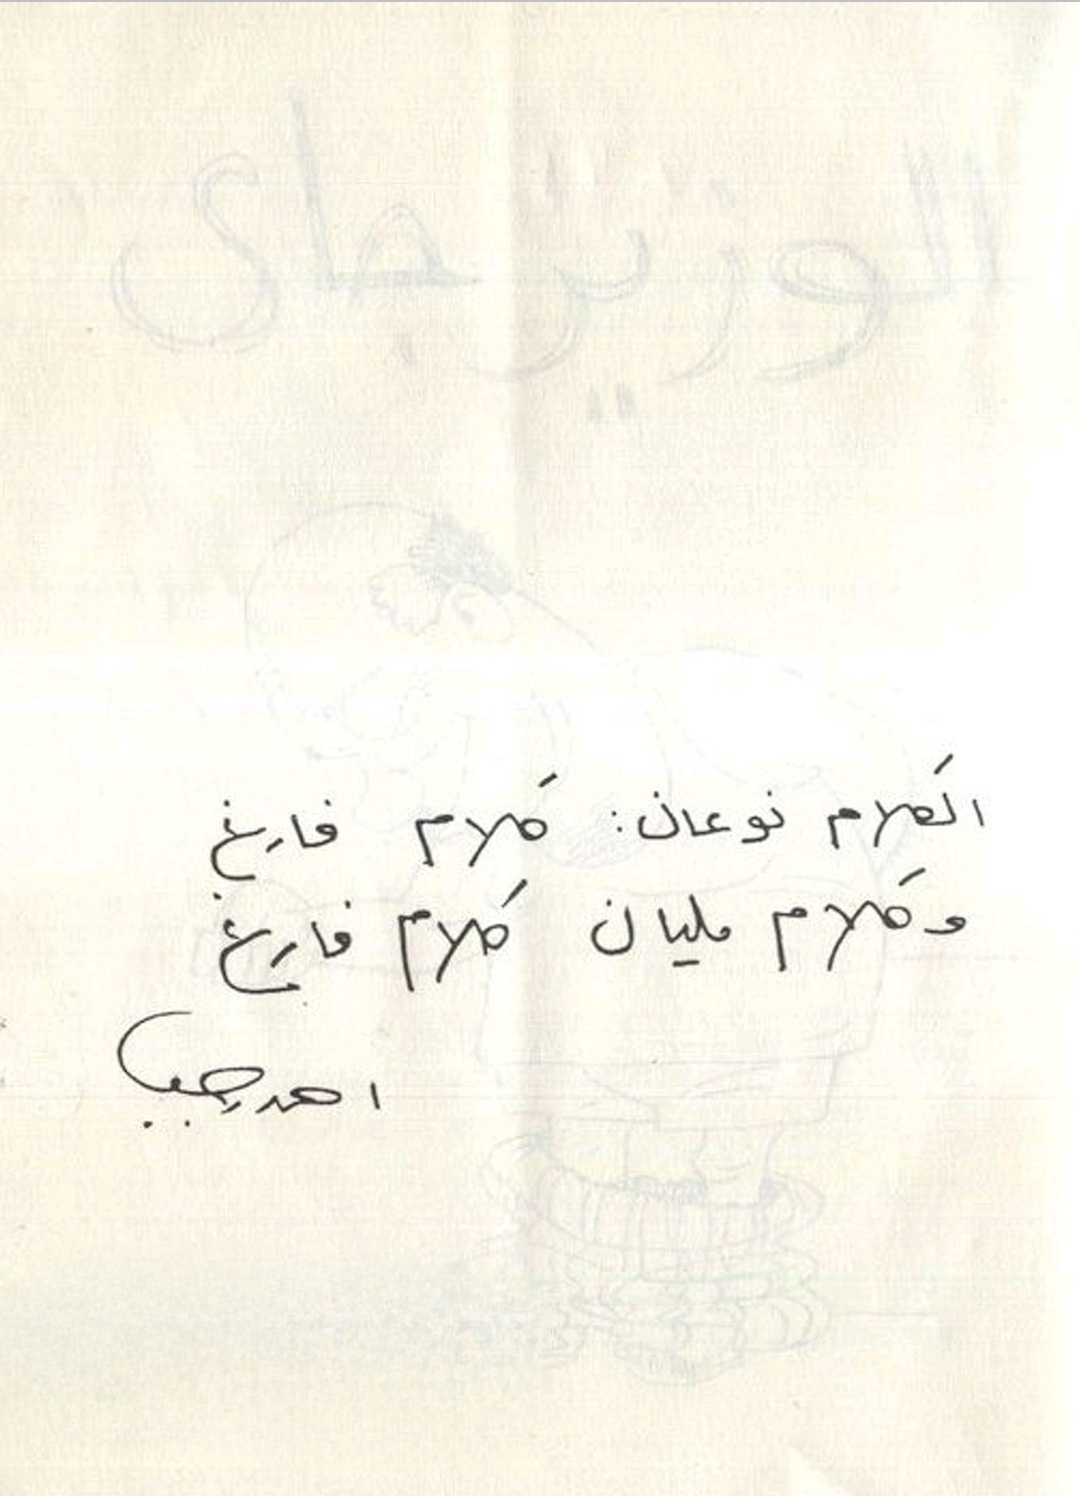 الكلام نوعان: كلام فارغ
وكلام مليان كلام فارغ
احمد رجب